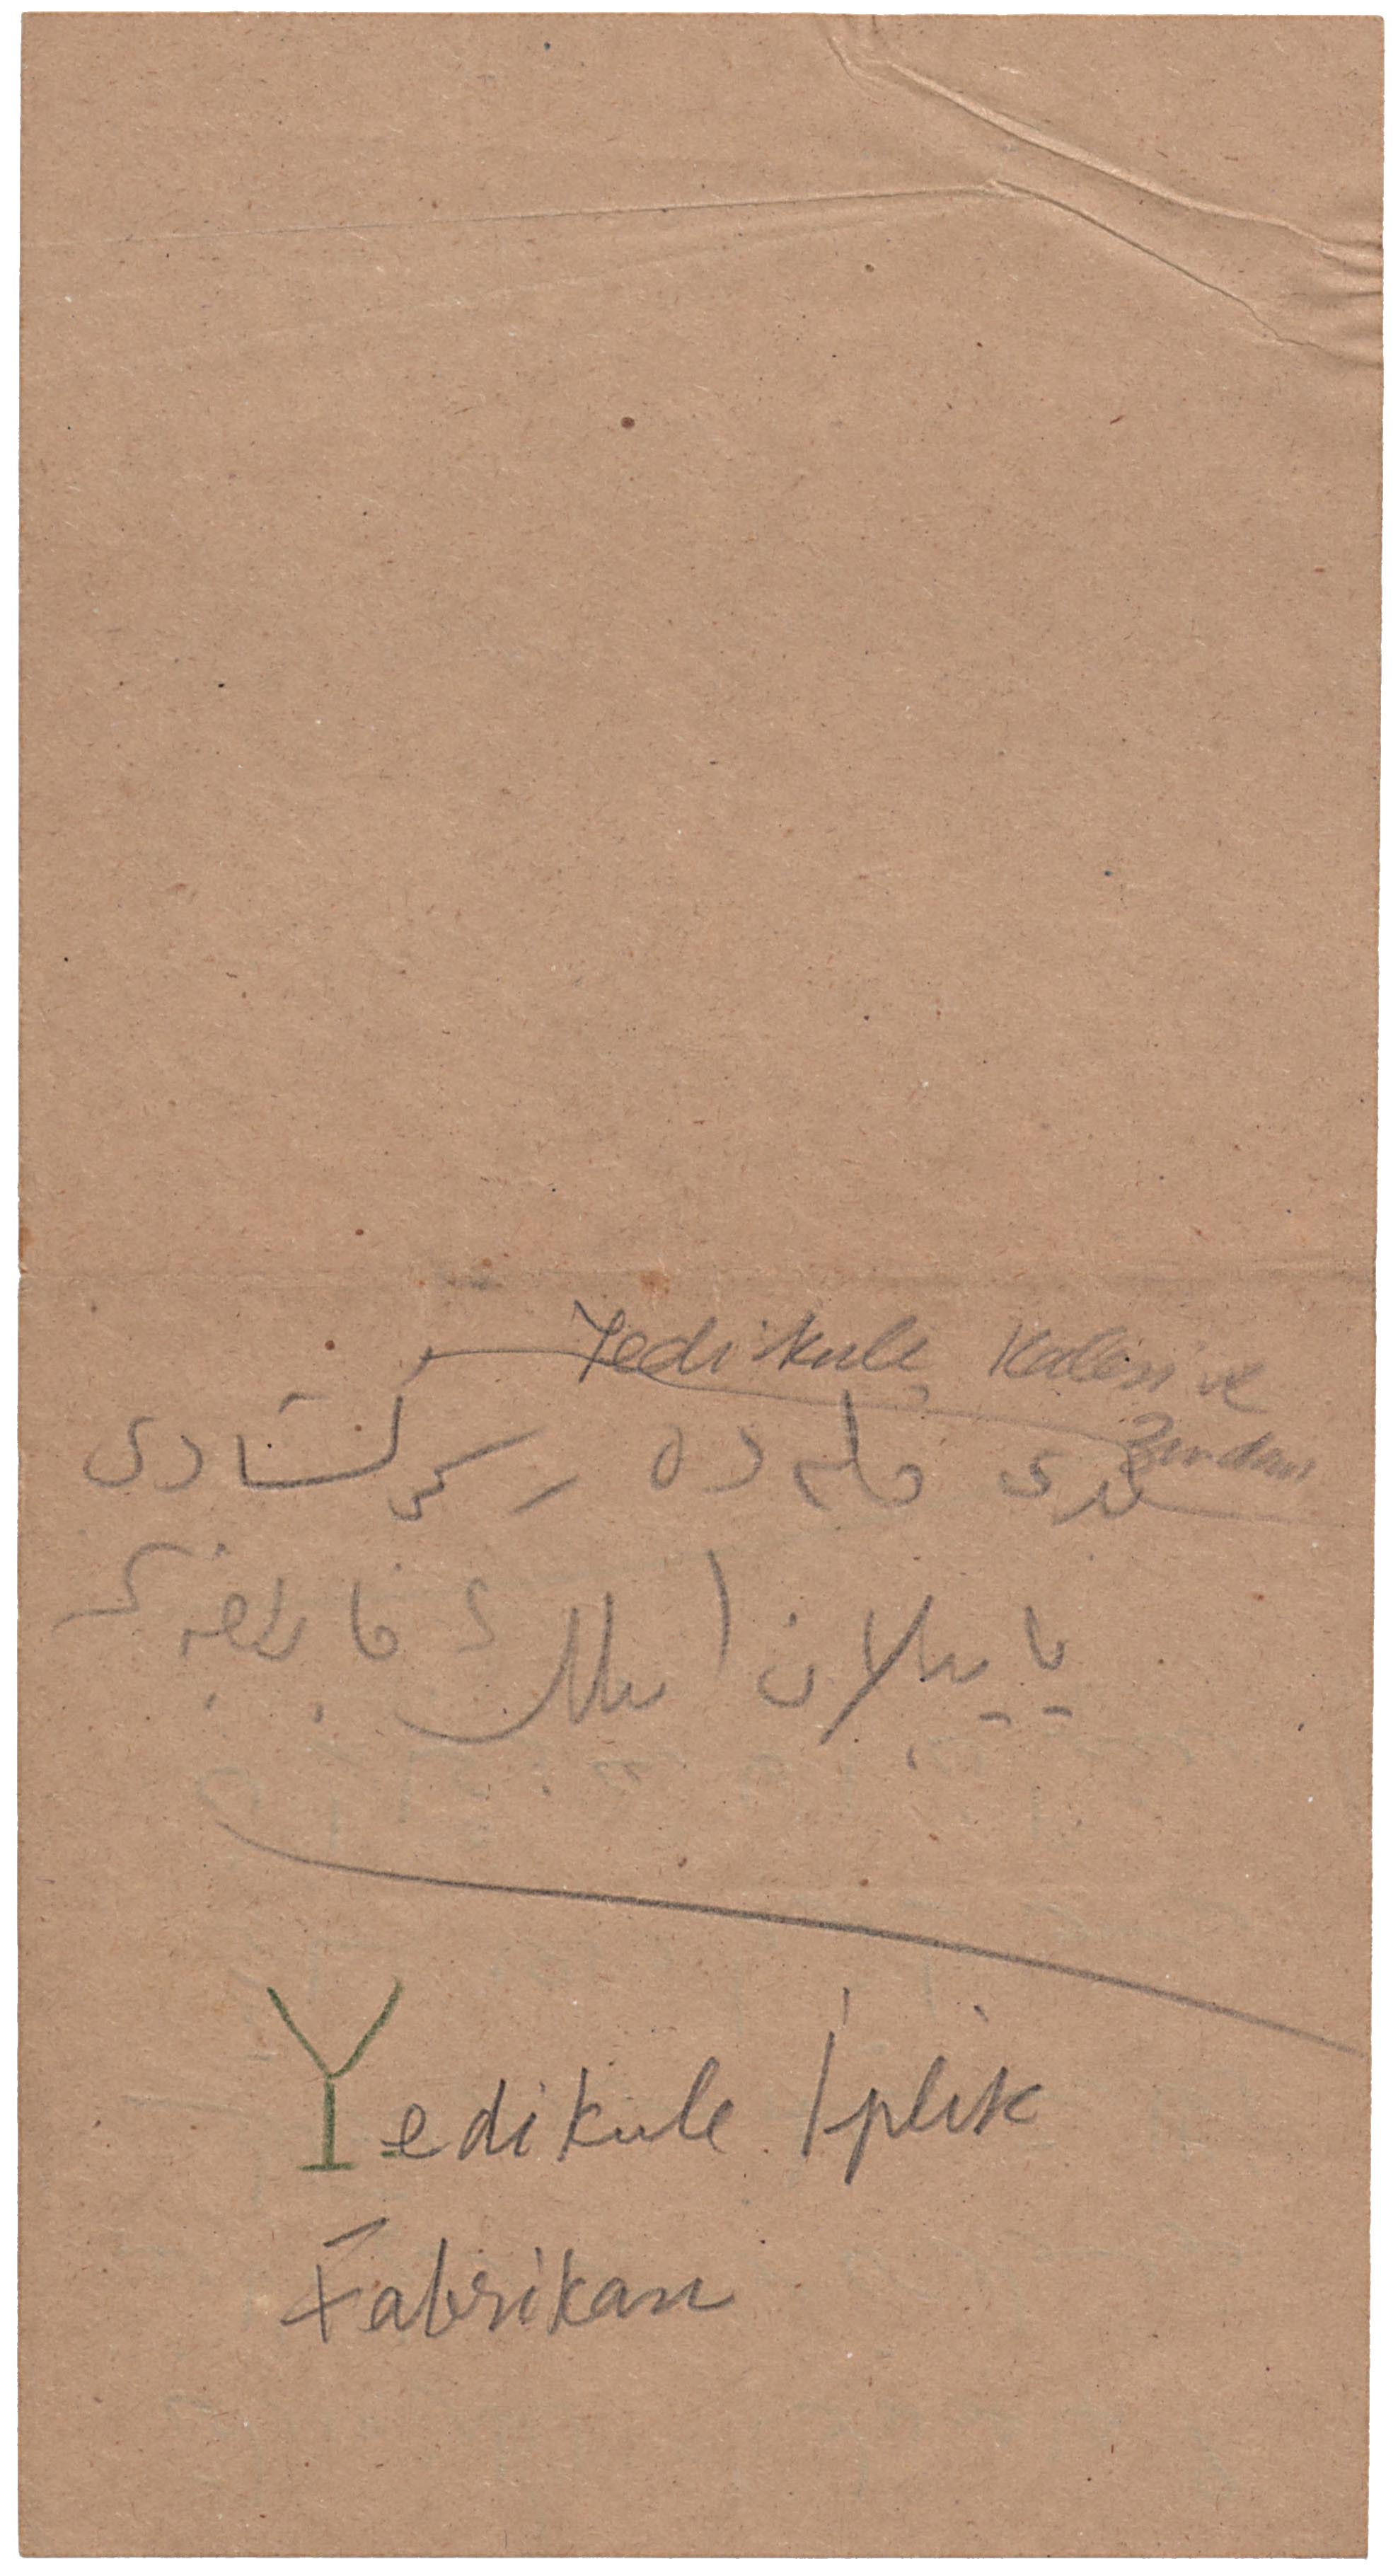 Yedikule Kalesi ve
Zindanı
یدی قله ده رسم کشادی
یاپیلان ایپلك فابریقه
Yedikule İplik
Fabrikası